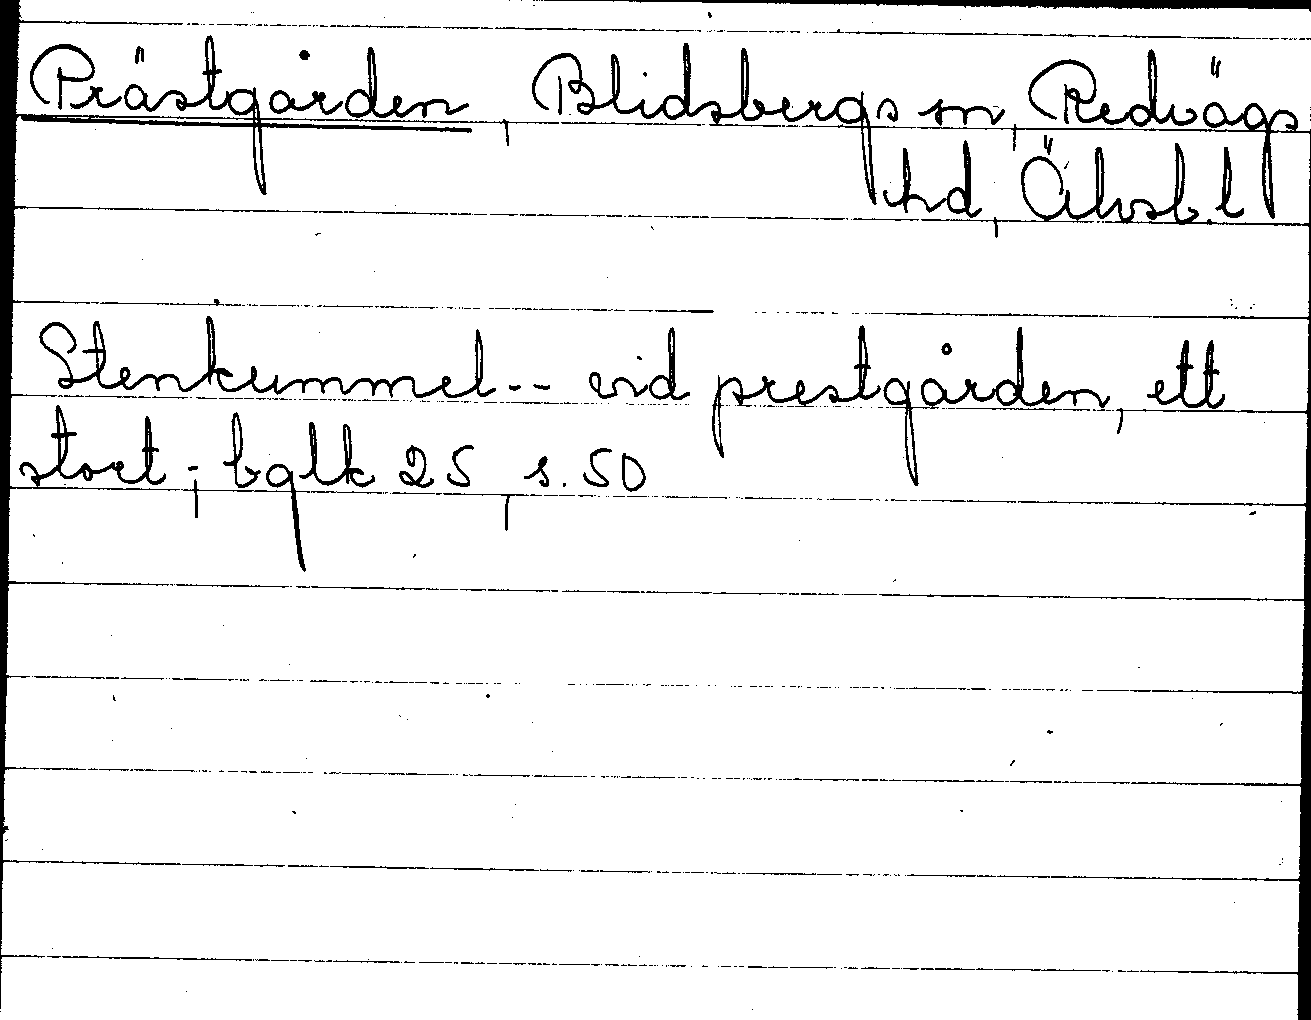 Prästgården, Blidsbergs sn, Redvägs
hd, Älvsb.l
Stenkummel -- vid prestgården, ett
stort; bglk 25, s. 50